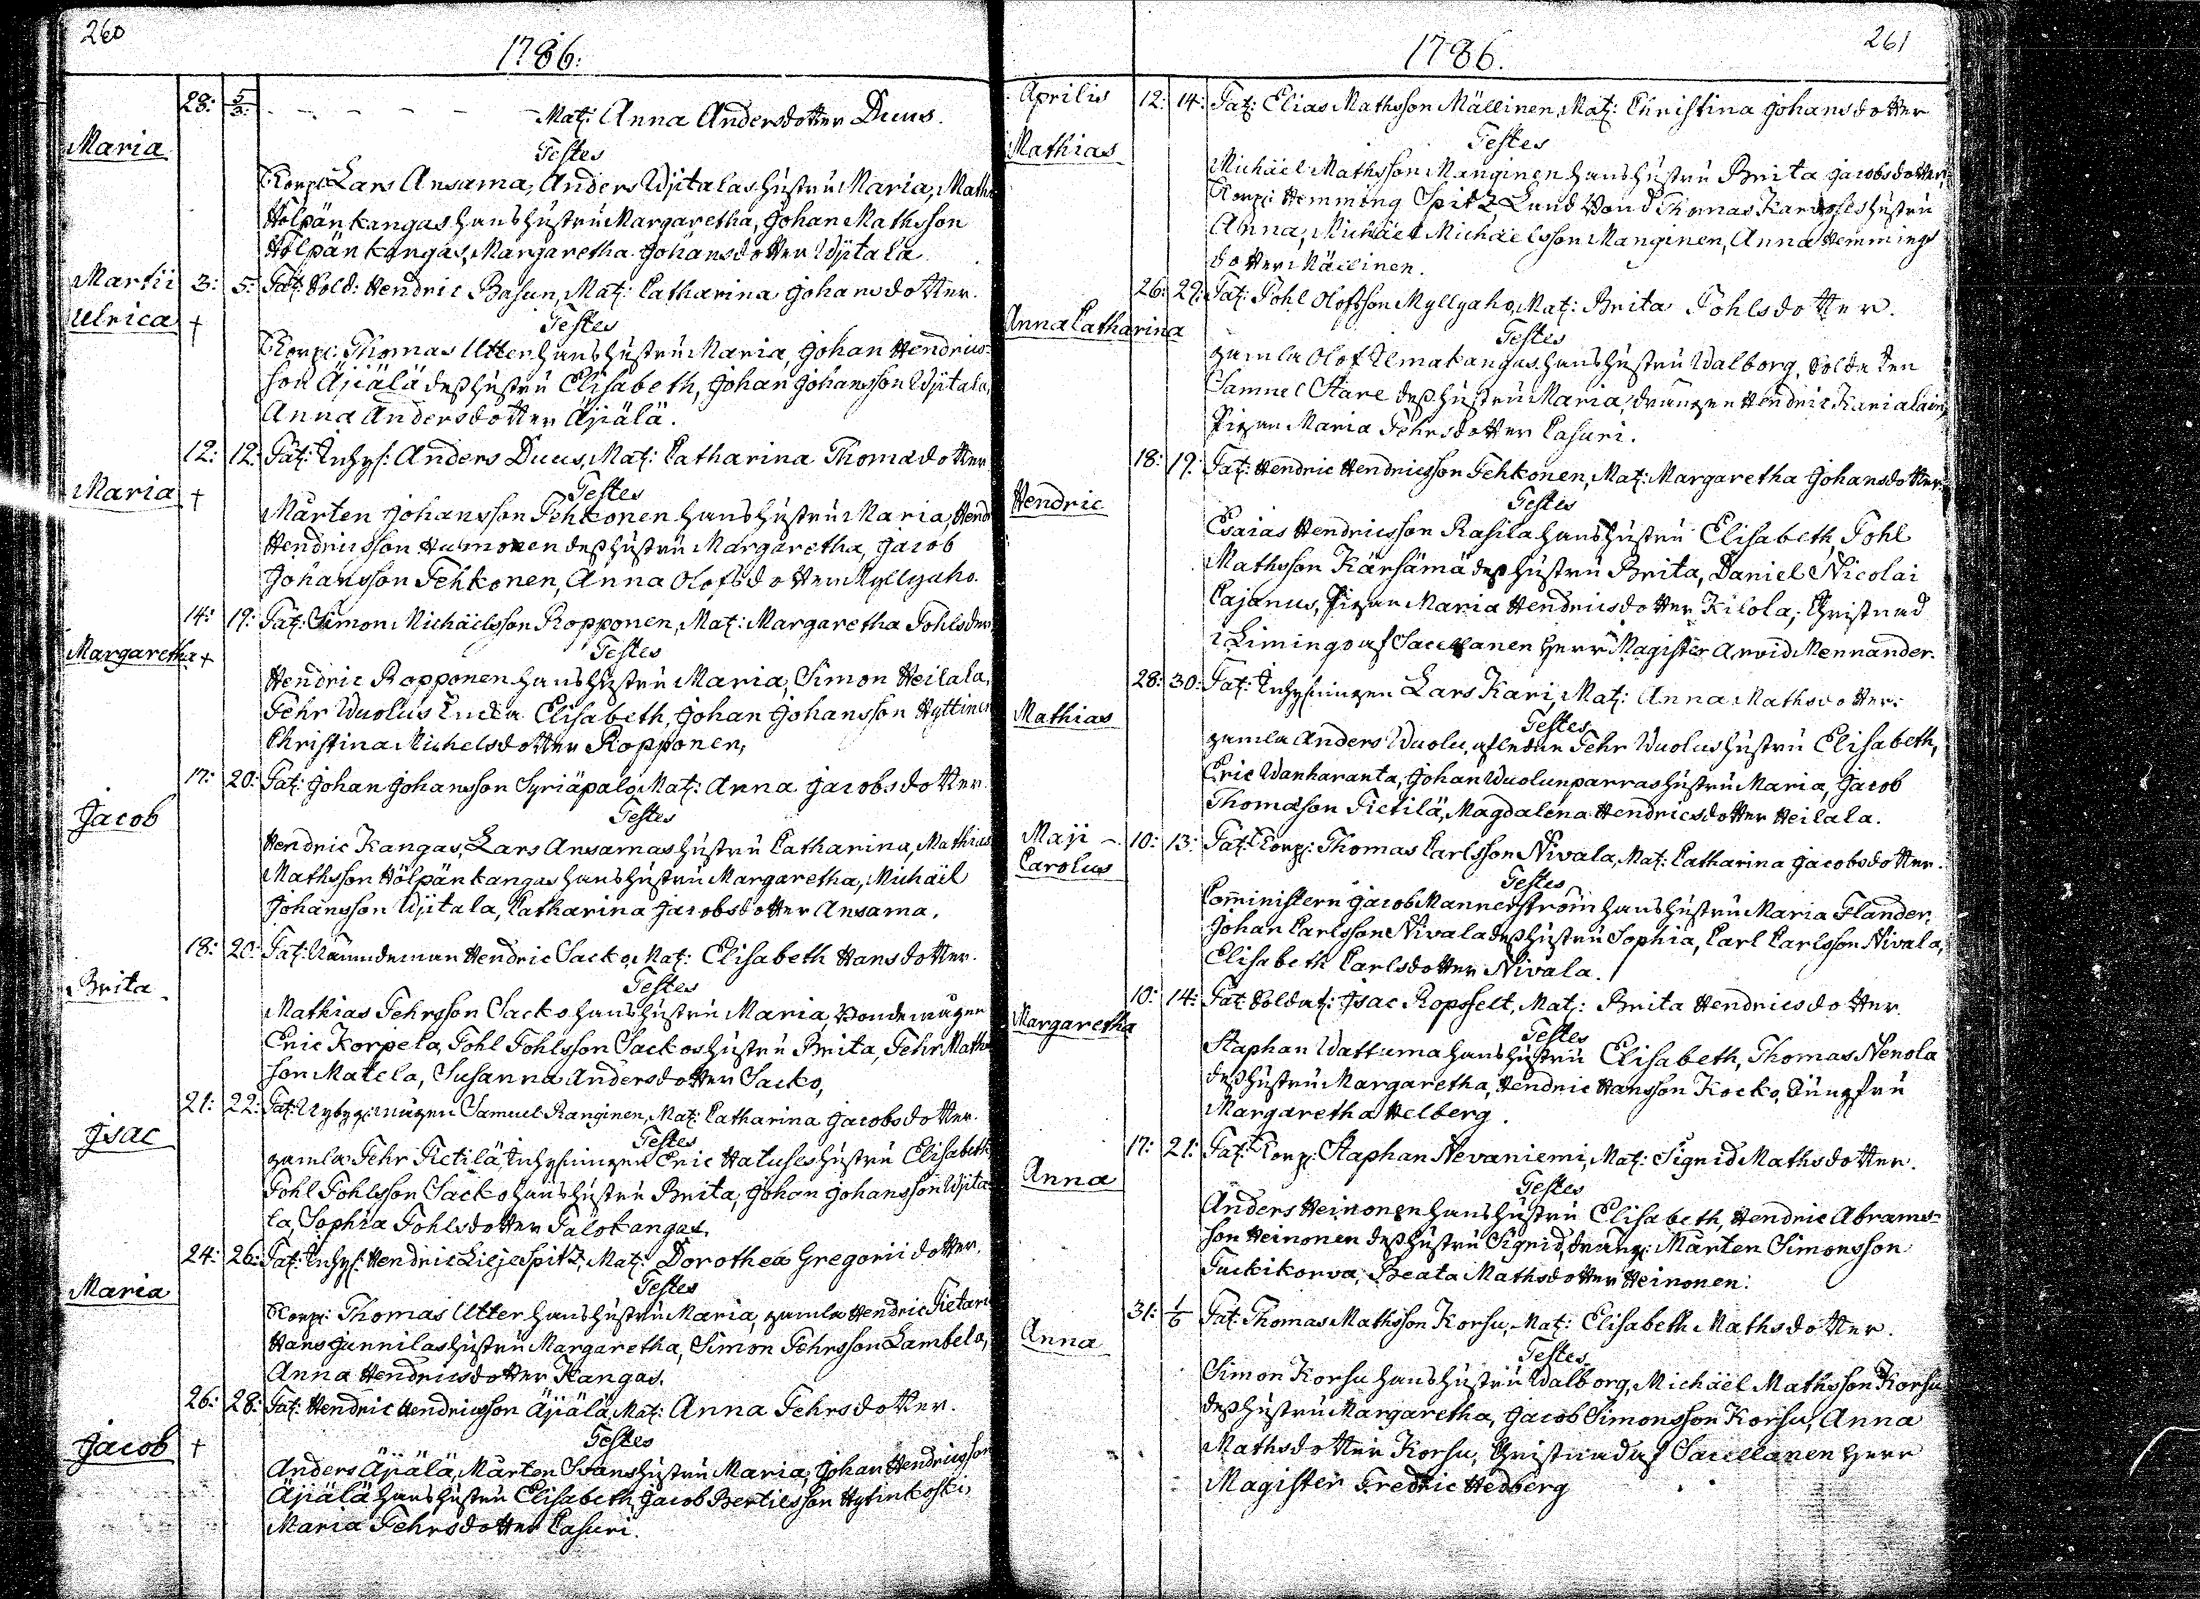 260
1786.
28: 5/3. - - - - - - Mat: Anna Andersdotter Duus.
Maria
Testes
Korp: Lars Ansama, Anders Wjitalas hustru Maria, Maths
Hölpänkangas hans hustru Margaretha, Johan Mathsson
Hölpänkangas, Margaretha Johansdotter Wjitala
Martii 3: 5: Fat: Sold: Hendric Basun, Mat: Catharina Johansdotter.
Ulrica +
Testes
Korp: Thomas Utter hans hustru Maria, Johan Hendrics-
son Äjiälä dess hustru Elisabeth, Johan Johansson Wjitala,
Anna Andersdotter Äjiälä.
12: 12: Fat: Inhys: Anders Duus, Mat: Catharina Thomædotter
Maria +
Testes
Mårten Johansson Tehkonen hans hustru Maria, Hend
Hendricsson Humonen dess hustru Margaretha, Jacob
Johansson Tehkonen, Anna Olofsdotter Myllyaho.
14: 19: Fat: Simon Michaelsson Ropponen, Mat: Margaretha Pohlsdr
Margaretha +
Testes
Hendric Ropponen hans hustru Maria, Simon Heilala,
Pehr Wuolus Encka Elisabeth, Johan Johansson Hyttinen
Christina Michelsdotter Ropponen,
17: 20: Fat: Johan Johansson Syriäpalo, Mat: Anna Jacobsdotter
Jacob
Testes
Hendric Kangas, Lars Ansamas hustru Catharina, Mathias
Mathsson Hölpänkangas hans hustru Margaretha, Michäel
Johansson Wjitala, Catharina Jacobsdotter Ansama.
18: 20: Fat: Nämndeman Hendric Sacko, Mat: Elisabeth Hansdotter.
Brita
Testes
Mathias Pehrsson Sacko hans hustru Maria, Bondemågen
Eric Korpela, Pohl Pohlsson Sackos hustru Brita, Pehr Maths
son Matela, Susanna Andersdotter Sacko,
21: 22: Fat: Nybyg:mågen Samuel Ranginen, Mat: Catharina Jacobsdotter.
Isac
Testes
gamla Pehr Pietilä, Inhysningen Eric Hatuses hustru Elisabeth
Pohl Pohlsson Sacko hans hustru Brita, Johan Johansson Wjita
la, Sophia Pohlsdotter Palokangas.
24: 26: Fat: Inhys: Hendric Liljespitz, Mat: Dorothea Gregorii dotter.
Maria
Testes
Korp: Thomas Utter hans hustru Maria, gamla Hendric Pietari
Hans Gunnilas hustru Margaretha, Simon Pehrsson Lambela,
Anna Hendricsdotter Kangas.
26: 28: Fat: Hendric Hendricsson Äjiälä, Mat: Anna Pehrsdotter.
Jacob +
Testes
Anders Äjiälä, Mårten Svans hustru Maria, Johan Hendricsson
Äjiälä hans hustru Elisabeth, Jacob Bertilsson Hytinkoski,
Maria Pehrsdotter Casuri.
261
1786.
Aprilis 12: 14: Fat: Elias Mathsson Mällinen, Mat: Christina Johansdotter
Mathias
Testes
Michäel Mathsson Manginen hans hustru Brita Jacobsdotter,
Korp: Hemming Spitz Lund Bond Thomas Karvoses hustru
Anna, Michäel Michäelsson Manginen, Anna Hemmings
dotter Mällinen.
26: 29: Fat: Pohl Olofsson Myllyaho, Mat: Brita Pohlsdotter.
Anna Catharina
Testes
gamla Olof Ulmakangas hans hustru Walborg, Soldaten
Samuel Stare dess hustru Maria, drängen Hendric Karialain,
Pigan Maria Pehrsdotter Casuri.
18: 19. Fat: Hendric Hendricsson Tehkonen, Mat: Margaretha Johansdotter.
Hendric
Testes
Esaias Hendricsson Rasila hans hustru Elisabeth, Pohl
Mathsson Kärsämä dess hustru Brita, Daniel Nicolai
Cajanus, Pigan Maria Hendricsdotter Kilola, Christnad
i Limingo af Sacellanen Herr Magister Arvid Mennander.
28: 30: Fat: Inhysningen Lars Kari, Mat: Anna Mathsdotter.
Mathias
Testes
gamla Anders Wuolu, afledne Pehr Wuolus hustru Elisabeth,
Eric Wanharanta, Johan Wuolunparras hustru Maria, Jacob
Thomæson Pietilä, Magdalena Hendricsdotter Heilala.
Maji - 10: 13: Fat: Korp: Thomas Carlsson Nivala, Mat: Catharina Jacobsdotter.
Carolus
Testes
Comministern Jacob Mannerström hans hustru Maria Flander,
Johan Carlsson Nivala dess hustru Sophia, Carl Carlsson Nivala,
Elisabeth Carlsdotter Nivala.
10: 14: Fat: Soldat: Isac Ropsselt, Mat: Brita Hendricsdotter.
Margaretha
Testes
Staphan Wattuma hans hustru Elisabeth, Thomas Nenola
dess hustru Margaretha, Hendric Hansson Kocko, Jungfru
Margaretha Helberg.
17: 21: Fat: Korp: Staphan Nevaniemi, Mat: Sigrid Mathsdotter.
Anna
Testes
Anders Heinonen hans hustru Elisabeth, Hendric Abrams-
son Heinonen dess hustru Sigrid, dräng: Mårten Simonsson
Tuckikorva, Beata Mathsdotter Heinonen.
31: 1/6 Fat: Thomas Mathsson Korsu, Mat: Elisabeth Mathsdotter.
Anna
Testes
Simon Korsu hans hustru Walborg, Michäel Mathsson Korsu
dess hustru Margaretha, Jacob Simonsson Korsu, Anna
Mathsdotter Korsu, Christnad af Sacellanen Herr
Magister Fredric Hedberg